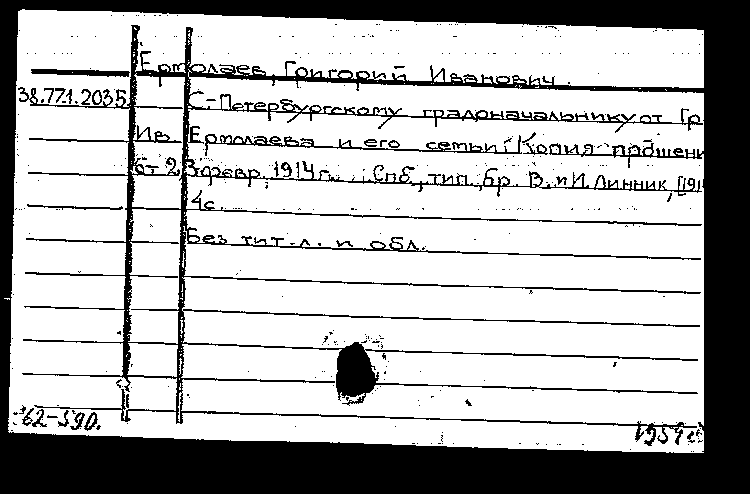 Ермолаев, Григорий Иванович.
38.77.1.2035 С-Петербургскому градоначальнику от Гр.
Ив. Ермолаева и его семьи: Копия прошени
от 23 февр. 1914 г. Спб., тип. бр. В. и И. Линник, [191
4с.
Без тит. л. и обл.
62-590. 1954